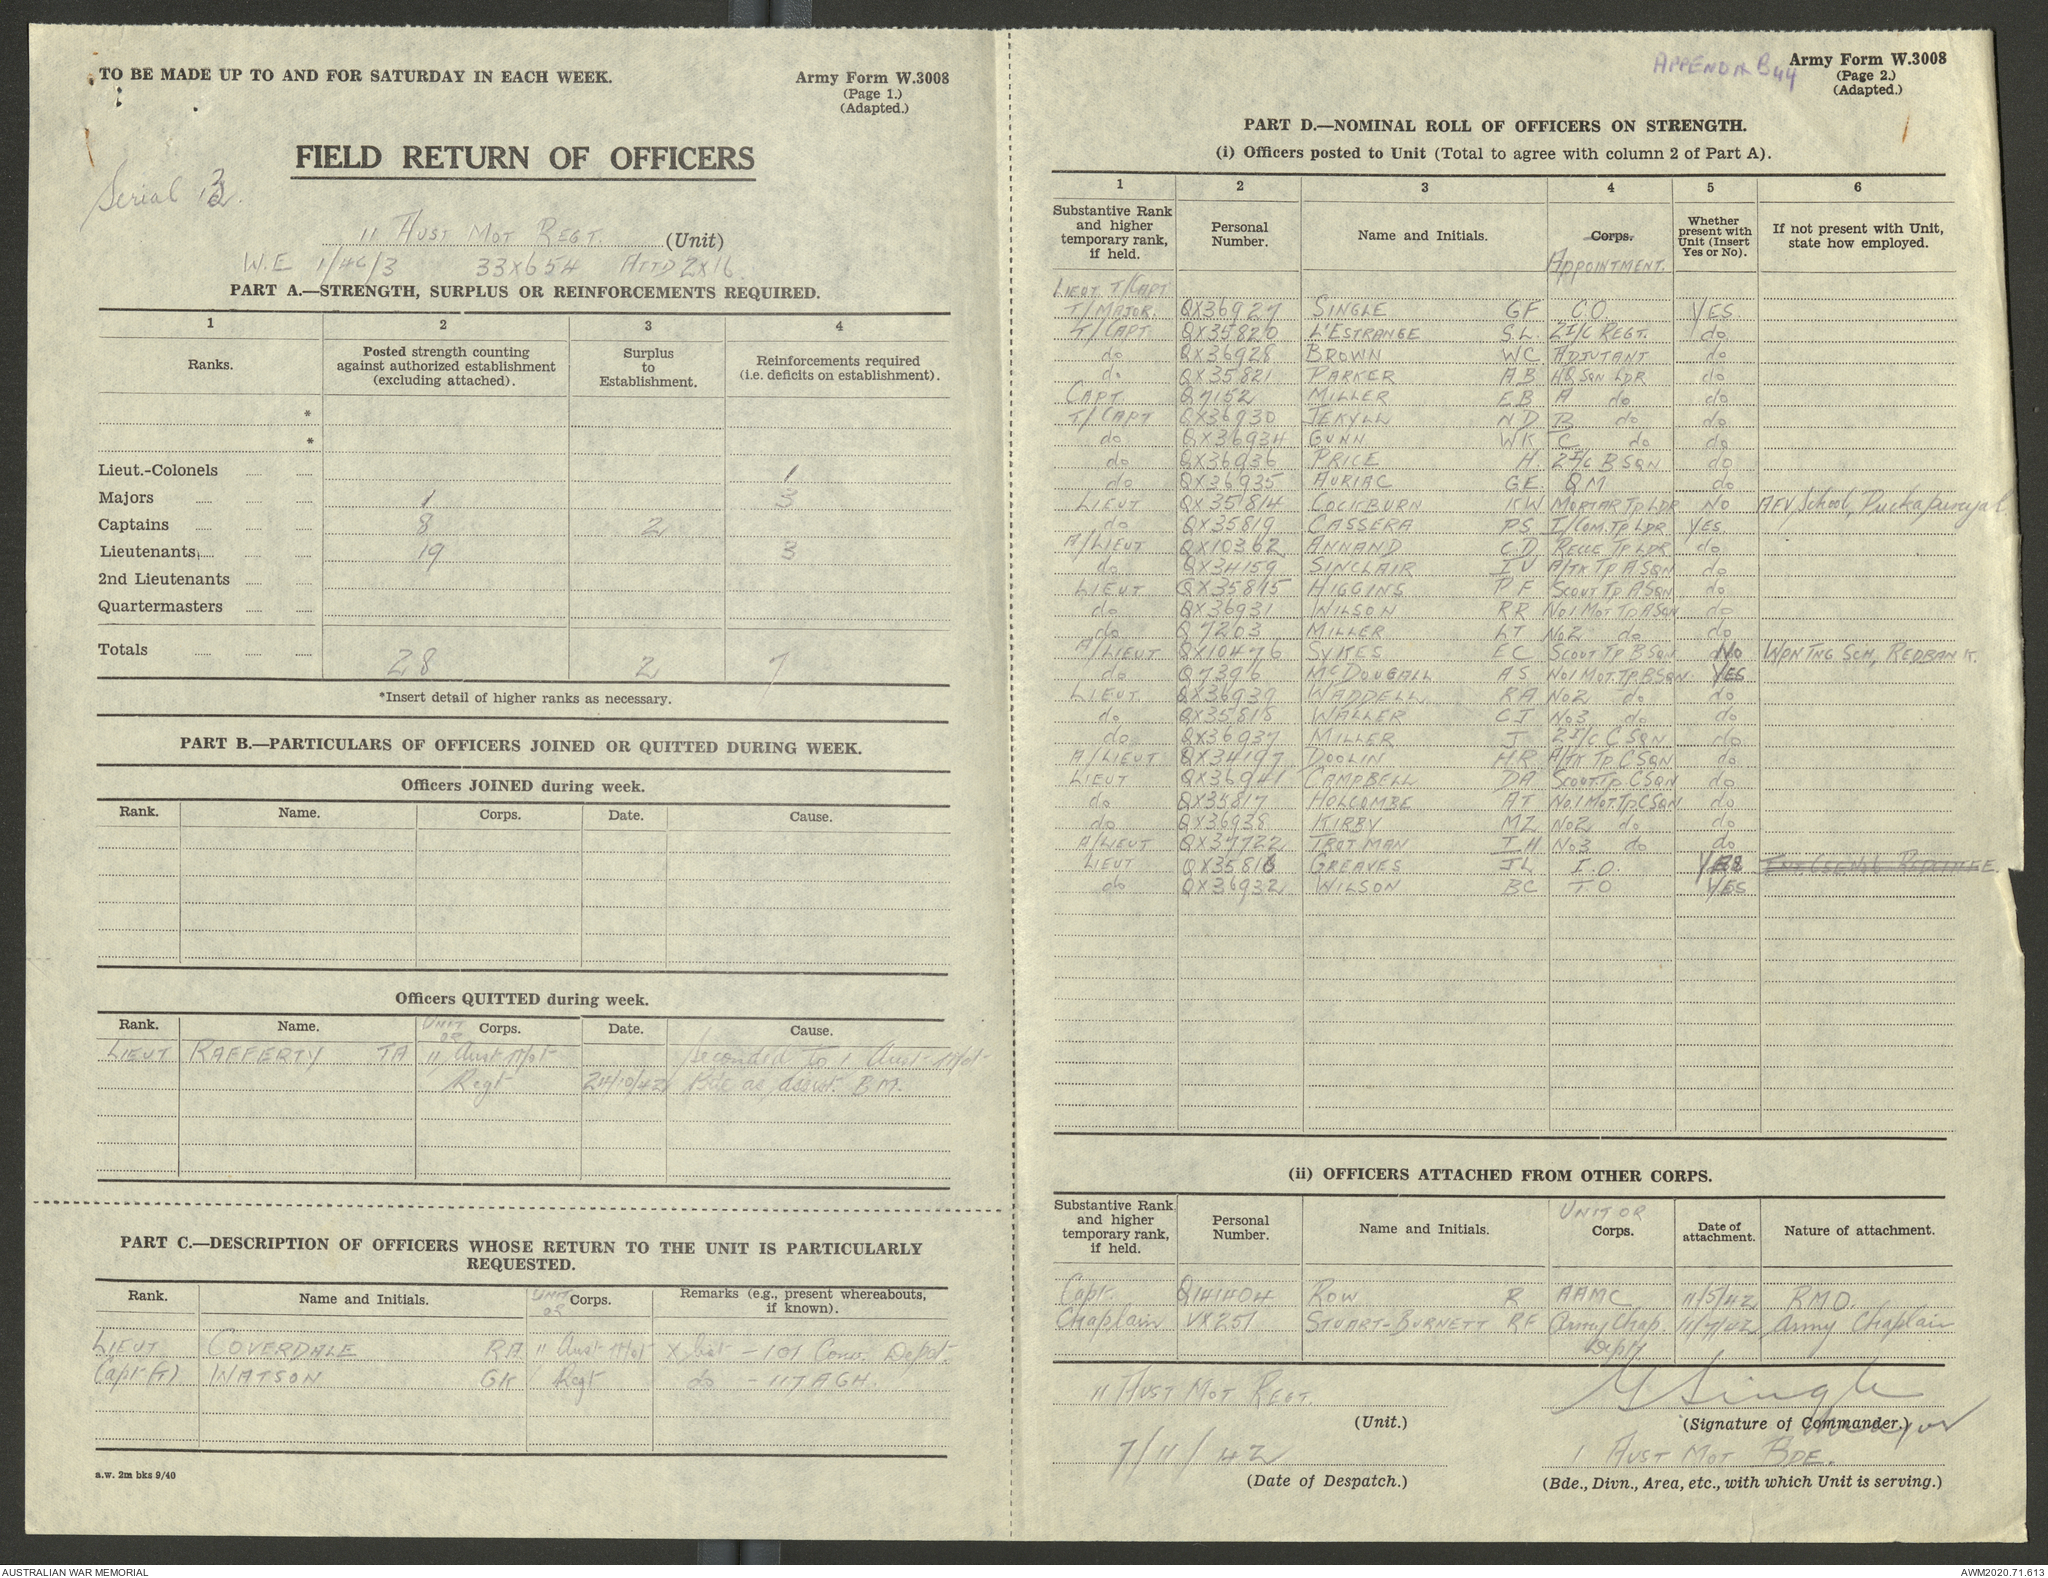 TO BE MADE UP TO AND FOR SATURDAY IN EACH WEEK.
Army Form W.3008
(Page 1.)
(Adapted.)
FIELD RETURN OF OFFICERS
Serial
11 AUST MOT REGT. (Unit)
W.E 1/46/3 33x654 ATTD 2x16
PART A.—STRENGTH, SURPLUS OR REINFORCEMENTS REQUIRED.
1 2 3 4
Ranks. Posted strength counting against authorized establishment (excluding attached). Surplus to Establishment. Reinforcements required (i.e. deficits on establishment).
*
*
Lieut.-Colonels ..... ..... 1
Majors ..... ..... 1 3
Captains ..... ..... 8 2
Lieutenants ..... ..... 19 3
2nd Lieutenants ..... .....
Quartermasters ..... .....
Totals ..... ..... 28 2 7
*Insert detail of higher ranks as necessary.
PART B.—PARTICULARS OF OFFICERS JOINED OR QUITTED DURING WEEK.
Officers JOINED during week.
Rank. Name. Corps. Date. Cause.
Officers QUITTED during week.
Rank. Name. UNIT OR Corps. Date. Cause.
LIEUT RAFFERTY TA 11 Aust Mot seconded to 1 Aust Mot
Regt 24/10/42 Bde as assist. B.M.
PART C.—DESCRIPTION OF OFFICERS WHOSE RETURN TO THE UNIT IS PARTICULARLY
REQUESTED.
Rank. Name and Initials. UNIT OR Corps. Remarks (e.g., present whereabouts, if known).
LIEUT COVERDALE RA 11 Aust Mot X list - 101 Conv. Depot.
Capt (T) WATSON GK Regt do - 117 AGH.
a.w. 2m bks 9/40
APPENDIX B44
Army Form W.3008
(Page 2.)
(Adapted.)
PART D.—NOMINAL ROLL OF OFFICERS ON STRENGTH.
(i) Officers posted to Unit (Total to agree with column 2 of Part A).
1 2 3 4 5 6
Substantive Rank and higher temporary rank, if held. Personal Number. Name and Initials. Corps. APPOINTMENT. Whether present with Unit (Insert Yes or No). If not present with Unit, state how employed.
LIEUT T/CAPT
T/MAJOR. QX36927 SINGLE GF C.O. YES.
T/CAPT. QX35820 L'ESTRANGE S.L. 2I/C REGT. do
do QX36928 BROWN WC ADJUTANT do
do QX35821 PARKER AB HQ SQN LDR do
CAPT Q7152 MILLER EB A do do
T/CAPT QX36930 JEKYLL ND B do do
do QX36934 GUNN WK C do do
do QX36936 PRICE H. 2I/C B SQN do
do QX36935 AURIAC GE QM do
LIEUT QX35814 COCKBURN KW MORTAR TP LDR NO AFV School, Puckapunyal
do QX35819 CASSERA PS I/COM.TP LDR YES.
A/LIEUT QX10362 ANNAND C.D RECCE TP LDR do
do QX34159 SINCLAIR IV A/TK TP A SQN do
LIEUT QX35815 HIGGINS PF SCOUT TP A SQN do
do QX36931 WILSON RR No1 MOT TP A SQN do
do Q7203 MILLER LT No2 do do
A/LIEUT QX10476 SYKES EC SCOUT TP B SQN NO WPN TNG SCH, REDBANK.
do Q7396 McDOUGALL AS No1 MOT.TP.B SQN YES
LIEUT QX36939 WADDELL RA No2 do do
do QX35818 WALLER CJ No3 do do
do QX36937 MILLER J 2I/C C SQN do
A/LIEUT QX34197 DOOLIN HR A/TK TP C SQN do
LIEUT QX36941 CAMPBELL DA SCOUT TP C SQN do
do QX35817 HOLCOMBE AT No1 MOT.TP.C SQN do
do QX36938 KIRBY MZ No2 do do
A/LIEUT QX37722 TROTMAN I.H No3 do do
LIEUT QX35816 GREAVES JL I.O. YES
do QX36932 WILSON BC TO YES
(ii) OFFICERS ATTACHED FROM OTHER CORPS.
Substantive Rank and higher temporary rank, if held. Personal Number. Name and Initials. UNIT OR Corps. Date of attachment. Nature of attachment.
Capt. Q141404 ROW R AAMC 11/5/42 RMO.
Chaplain VX251 STUART-BURNETT RF Army Chap. 11/7/42 Army Chaplain
Dept
11 AUST MOT REGT. G Single
(Unit.) (Signature of Commander.) Major
7/11/42 1 AUST MOT BDE.
(Date of Despatch.) (Bde., Divn., Area, etc., with which Unit is serving.)
AUSTRALIAN WAR MEMORIAL
AWM2020.71.613